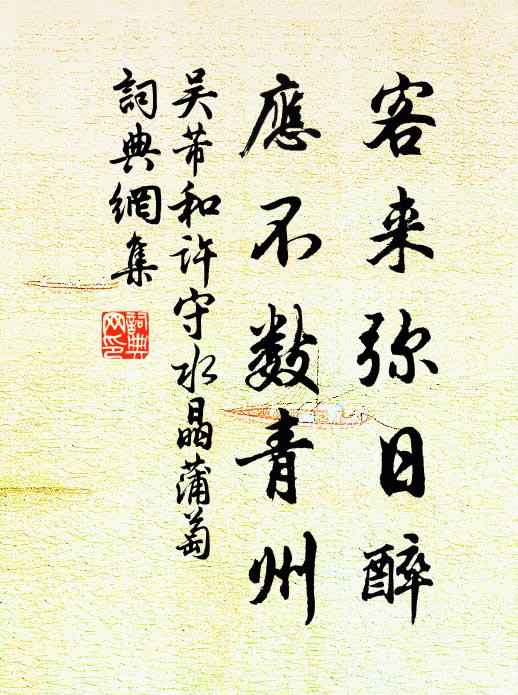 客来弥日醉
應不数青州
吴芾和许守水晶蒲萄
詞典網集
詞典网印